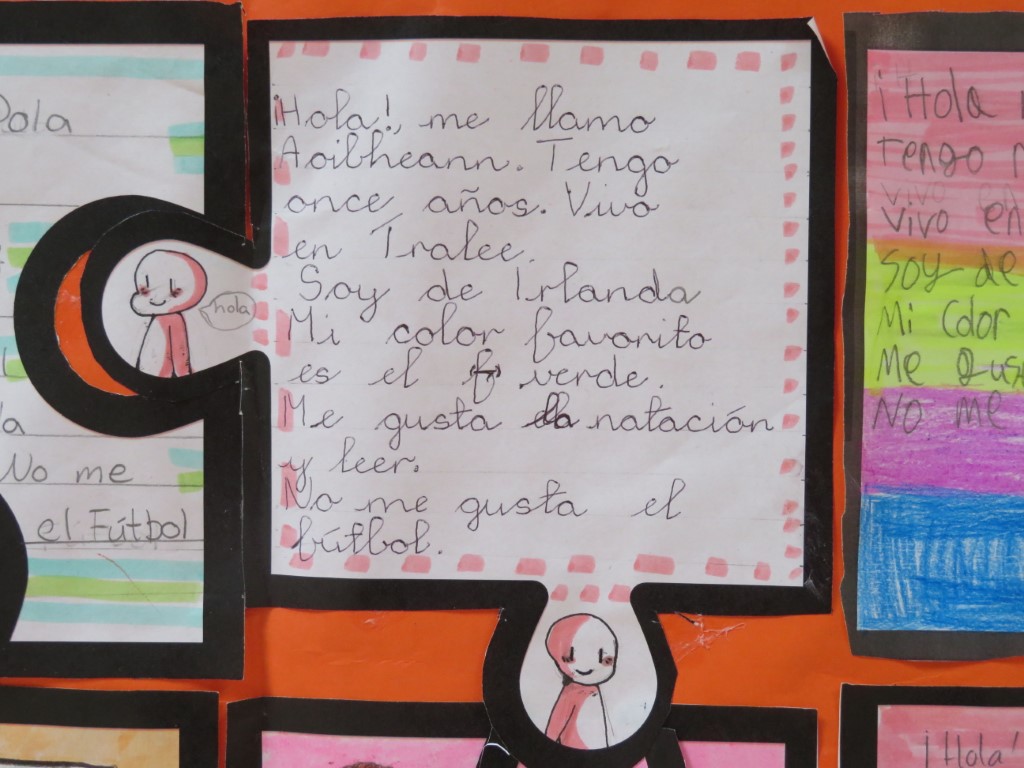 Dola
a
No me
el Fútbol
¡Hola!, me llamo
Aoibheann. Tengo
once años. Vivo
en Tralee.
Soy de Irlanda
Mi color favorito
es el verde.
Me gusta la natación
y leer.
No me gusta el
fútbol.
hola
¡Hola
Tengo
vivo en
Soy de
Mi Color
Me Gus
No me
¡Hola!